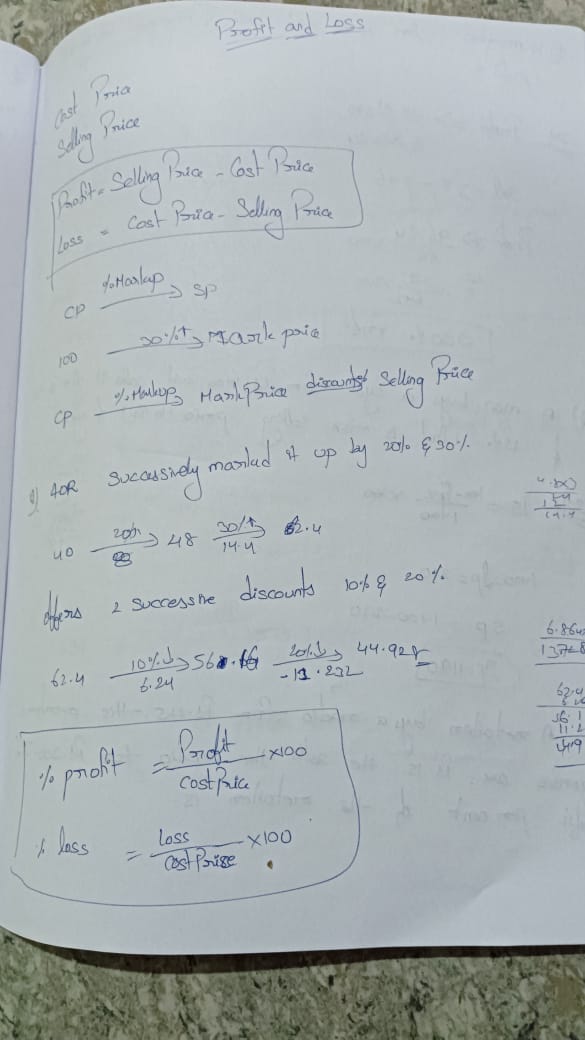 Profit and Loss
Cost Price
Selling Price
Profit = Selling Price - Cost Price
Loss = Cost Price - Selling Price
CP % Markup → SP
100 30%↑ → Mark price
CP % Markup → Mark Price discount Selling Price
40R Successively marked it up by 20% & 30%
40 20%↑ → 48 30%↑ → 62.4
14.4
offers 2 successive discounts 10% & 20%
62.4 10%↓ → 56.16 20%↓ → 44.928
6.24 -11.232
% profit = Profit / Cost Price ×100
% loss = Loss / Cost Price ×100